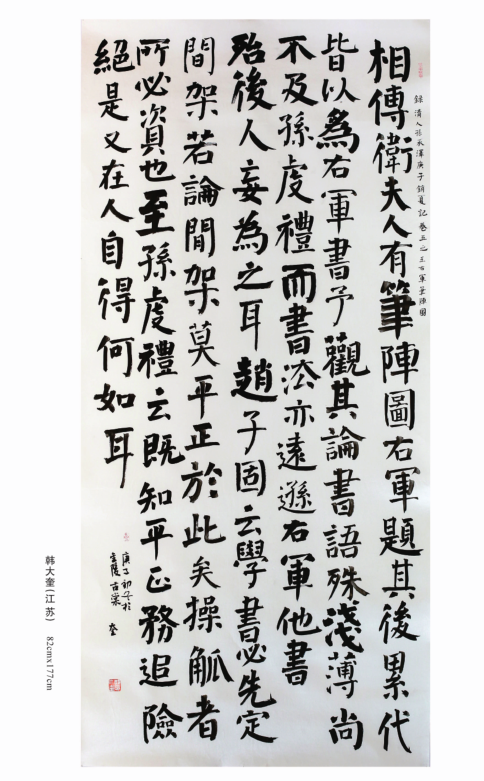 錄清人孫承澤庚子銷夏記卷五之王右軍筆陣圖
相傳衛夫人有筆陣圖右軍題其後累代
皆以爲右軍書予觀其論書語殊淺薄尚
不及孫虔禮而書法亦遠遜右軍他書
殆後人妄為之耳趙子固云學書必先定
間架若論間架莫平正於此矣操觚者
所必資也至孫虔禮云既知平正務追險
絕是又在人自得何如耳
庚子初冬於
金陵古棠 奎
韩大奎(江苏) 82cmx177cm